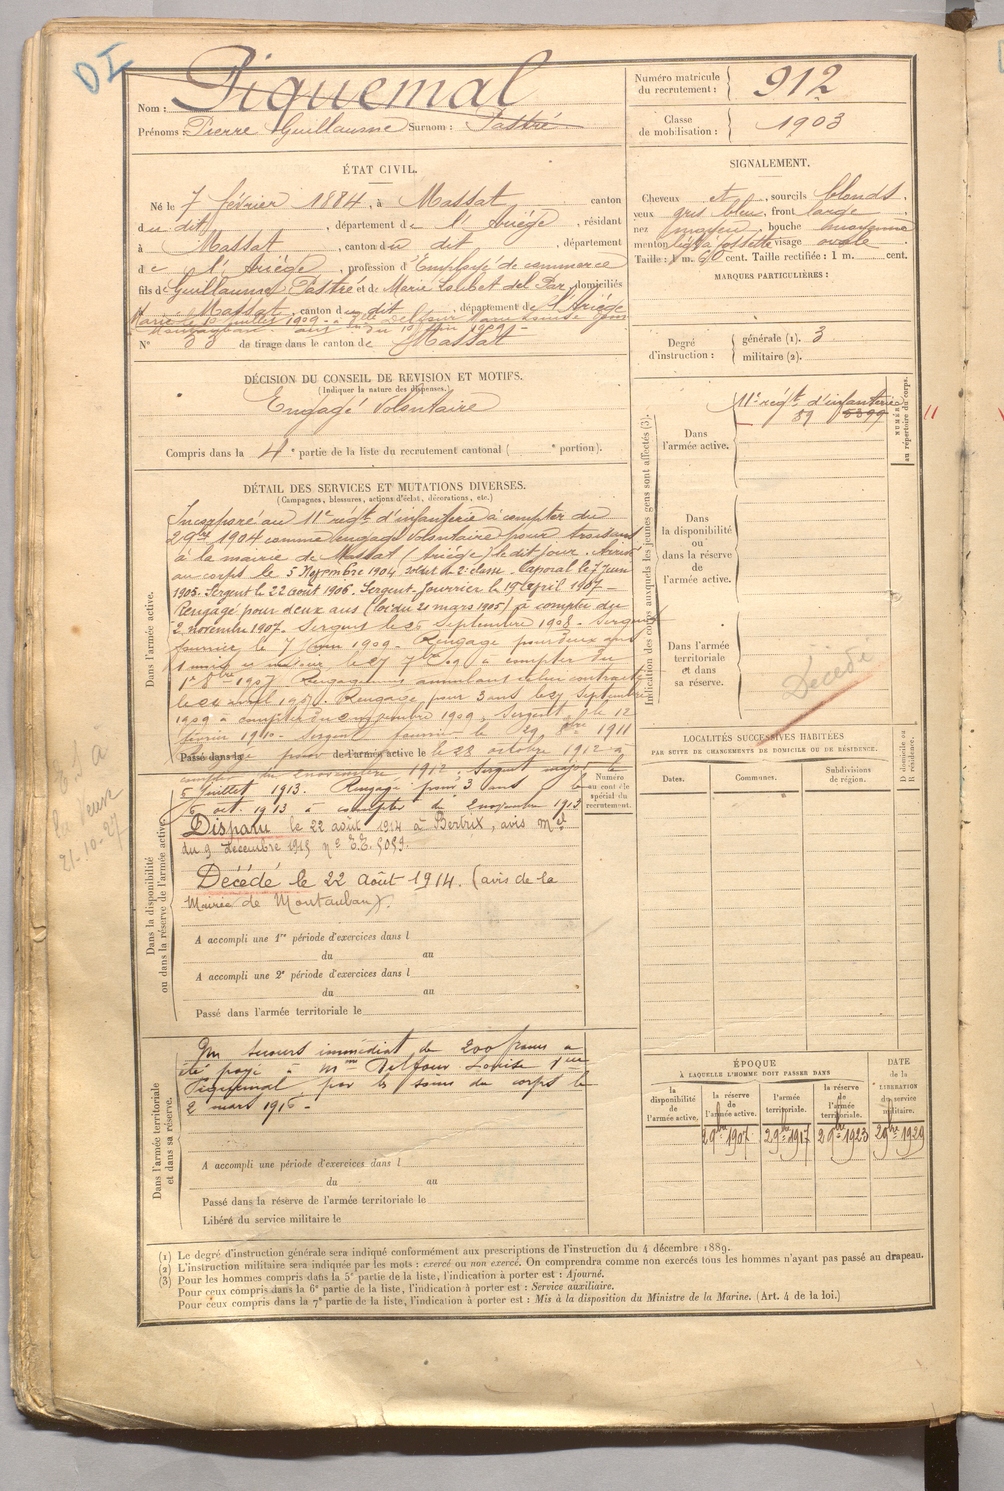 DI
Nom : Piquemal
Prénoms : Pierre Guillaume Surnom : Pastré
Numéro matricule du recrutement : 912
Classe de mobilisation : 1903
ÉTAT CIVIL.
Né le 7 février 1884, à Massat canton
du dit, département de l'Ariège, résidant
à Massat, canton du dit, département
de l'Ariège, profession d'Employé de commerce
fils de Guillaume Pastré et de Marie Loubet del Par, domiciliés
à Massat, canton du dit, département de l'Ariège
Marié le 10 juillet 1909 à Delle Delfour
Montauban
N° 33 de tirage dans le canton de Massat
SIGNALEMENT.
Cheveux et, sourcils blonds.
yeux gris bleu, front large
nez moyen, bouche moyenne
menton à fossette visage ovale
Taille : 1 m. 60 cent. Taille rectifiée : 1 m. cent.
MARQUES PARTICULIÈRES :
Degré d'instruction : générale (1). 3
militaire (2).
DÉCISION DU CONSEIL DE REVISION ET MOTIFS.
(Indiquer la nature des dispenses.)
Engagé Volontaire
Compris dans la 4e partie de la liste du recrutement cantonal ( e portion).
DÉTAIL DES SERVICES ET MUTATIONS DIVERSES.
(Campagnes, blessures, actions d'éclat, décorations, etc.)
Dans l'armée active.
Incorporé au 11e régt d'infanterie à compter du
29bre 1904 comme engagé Volontaire pour trois ans
à la mairie de Massat (Ariège) le dit jour. Arrivé
au corps le 5 Novembre 1904 soldat de 2e classe. Caporal le 7 Juin
1905. Sergent le 22 août 1906. Sergent-fourrier le 19 April 1907 -
Rengagé pour deux ans (loi du 21 mars 1905) à compter du
2 novembre 1907. Sergent le 26 Septembre 1908. Sergent
fourrier le 7 1909. Rengagé pour deux ans
1 mois le 27 7bre 09 à compter du
1er 8bre 1907 Rengagement annulant celui contracté
le 24 avril 1907. Rengagé pour 3 ans le 27 Septembre
1909 à compter du 2 novembre 1909. Sergent le 12
février 1910. Sergent fourrier le 29 8bre 1911
Passé dans la de l'armée active
Rengagé pour le 28 octobre 1912 à
compter du 2 novembre 1912. Sergent major le
5 juillet 1913. Rengagé pour 3 ans le
6 oct. 1913 à compter du 2 novembre 1913
Dans la disponibilité ou dans la réserve de l'armée active.
Disparu le 22 août 1914 à Bertrix, avis mel
du 9 décembre 1915 n° E.E. 5089.
Décédé le 22 Août 1914. (avis de la
Mairie de Montauban).
Numéro au contrôle spécial du recrutement.
A accompli une 1re période d'exercices dans l
du au
A accompli une 2e période d'exercices dans l
du au
Passé dans l'armée territoriale le
Dans l'armée territoriale et dans sa réserve.
Un secours immédiat de 200 francs a
été payé à Mme Delfour Louise Vve
Piquemal par les soins du corps le
2 mars 1916 -
A accompli une période d'exercices dans l
du au
Passé dans la réserve de l'armée territoriale le
Libéré du service militaire le
21-10-27
Indication des corps auxquels les jeunes gens sont affectés (3).
NUMÉRO au répertoire du corps.
Dans l'armée active.
11e régt d'infanterie
89 5399
11
Dans la disponibilité ou dans la réserve de l'armée active.
Dans l'armée territoriale et dans sa réserve.
Décédé
LOCALITÉS SUCCESSIVES HABITÉES
PAR SUITE DE CHANGEMENTS DE DOMICILE OU DE RÉSIDENCE.
Dates. Communes. Subdivisions de région. D domicile ou R résidence.
ÉPOQUE
À LAQUELLE L'HOMME DOIT PASSER DANS
DATE de la LIBÉRATION du service militaire.
la disponibilité de l'armée active.
la réserve de l'armée active.
l'armée territoriale.
la réserve de l'armée territoriale.
29bre 1907 29bre 1917 29bre 1923 29bre 1929
(1) Le degré d'instruction générale sera indiqué conformément aux prescriptions de l'instruction du 4 décembre 1889.
(2) L'instruction militaire sera indiquée par les mots : exercé ou non exercé. On comprendra comme non exercés tous les hommes n'ayant pas passé au drapeau.
(3) Pour les hommes compris dans la 5e partie de la liste, l'indication à porter est : Ajourné.
Pour ceux compris dans la 6e partie de la liste, l'indication à porter est : Service auxiliaire.
Pour ceux compris dans la 7e partie de la liste, l'indication à porter est : Mis à la disposition du Ministre de la Marine. (Art. 4 de la loi.)